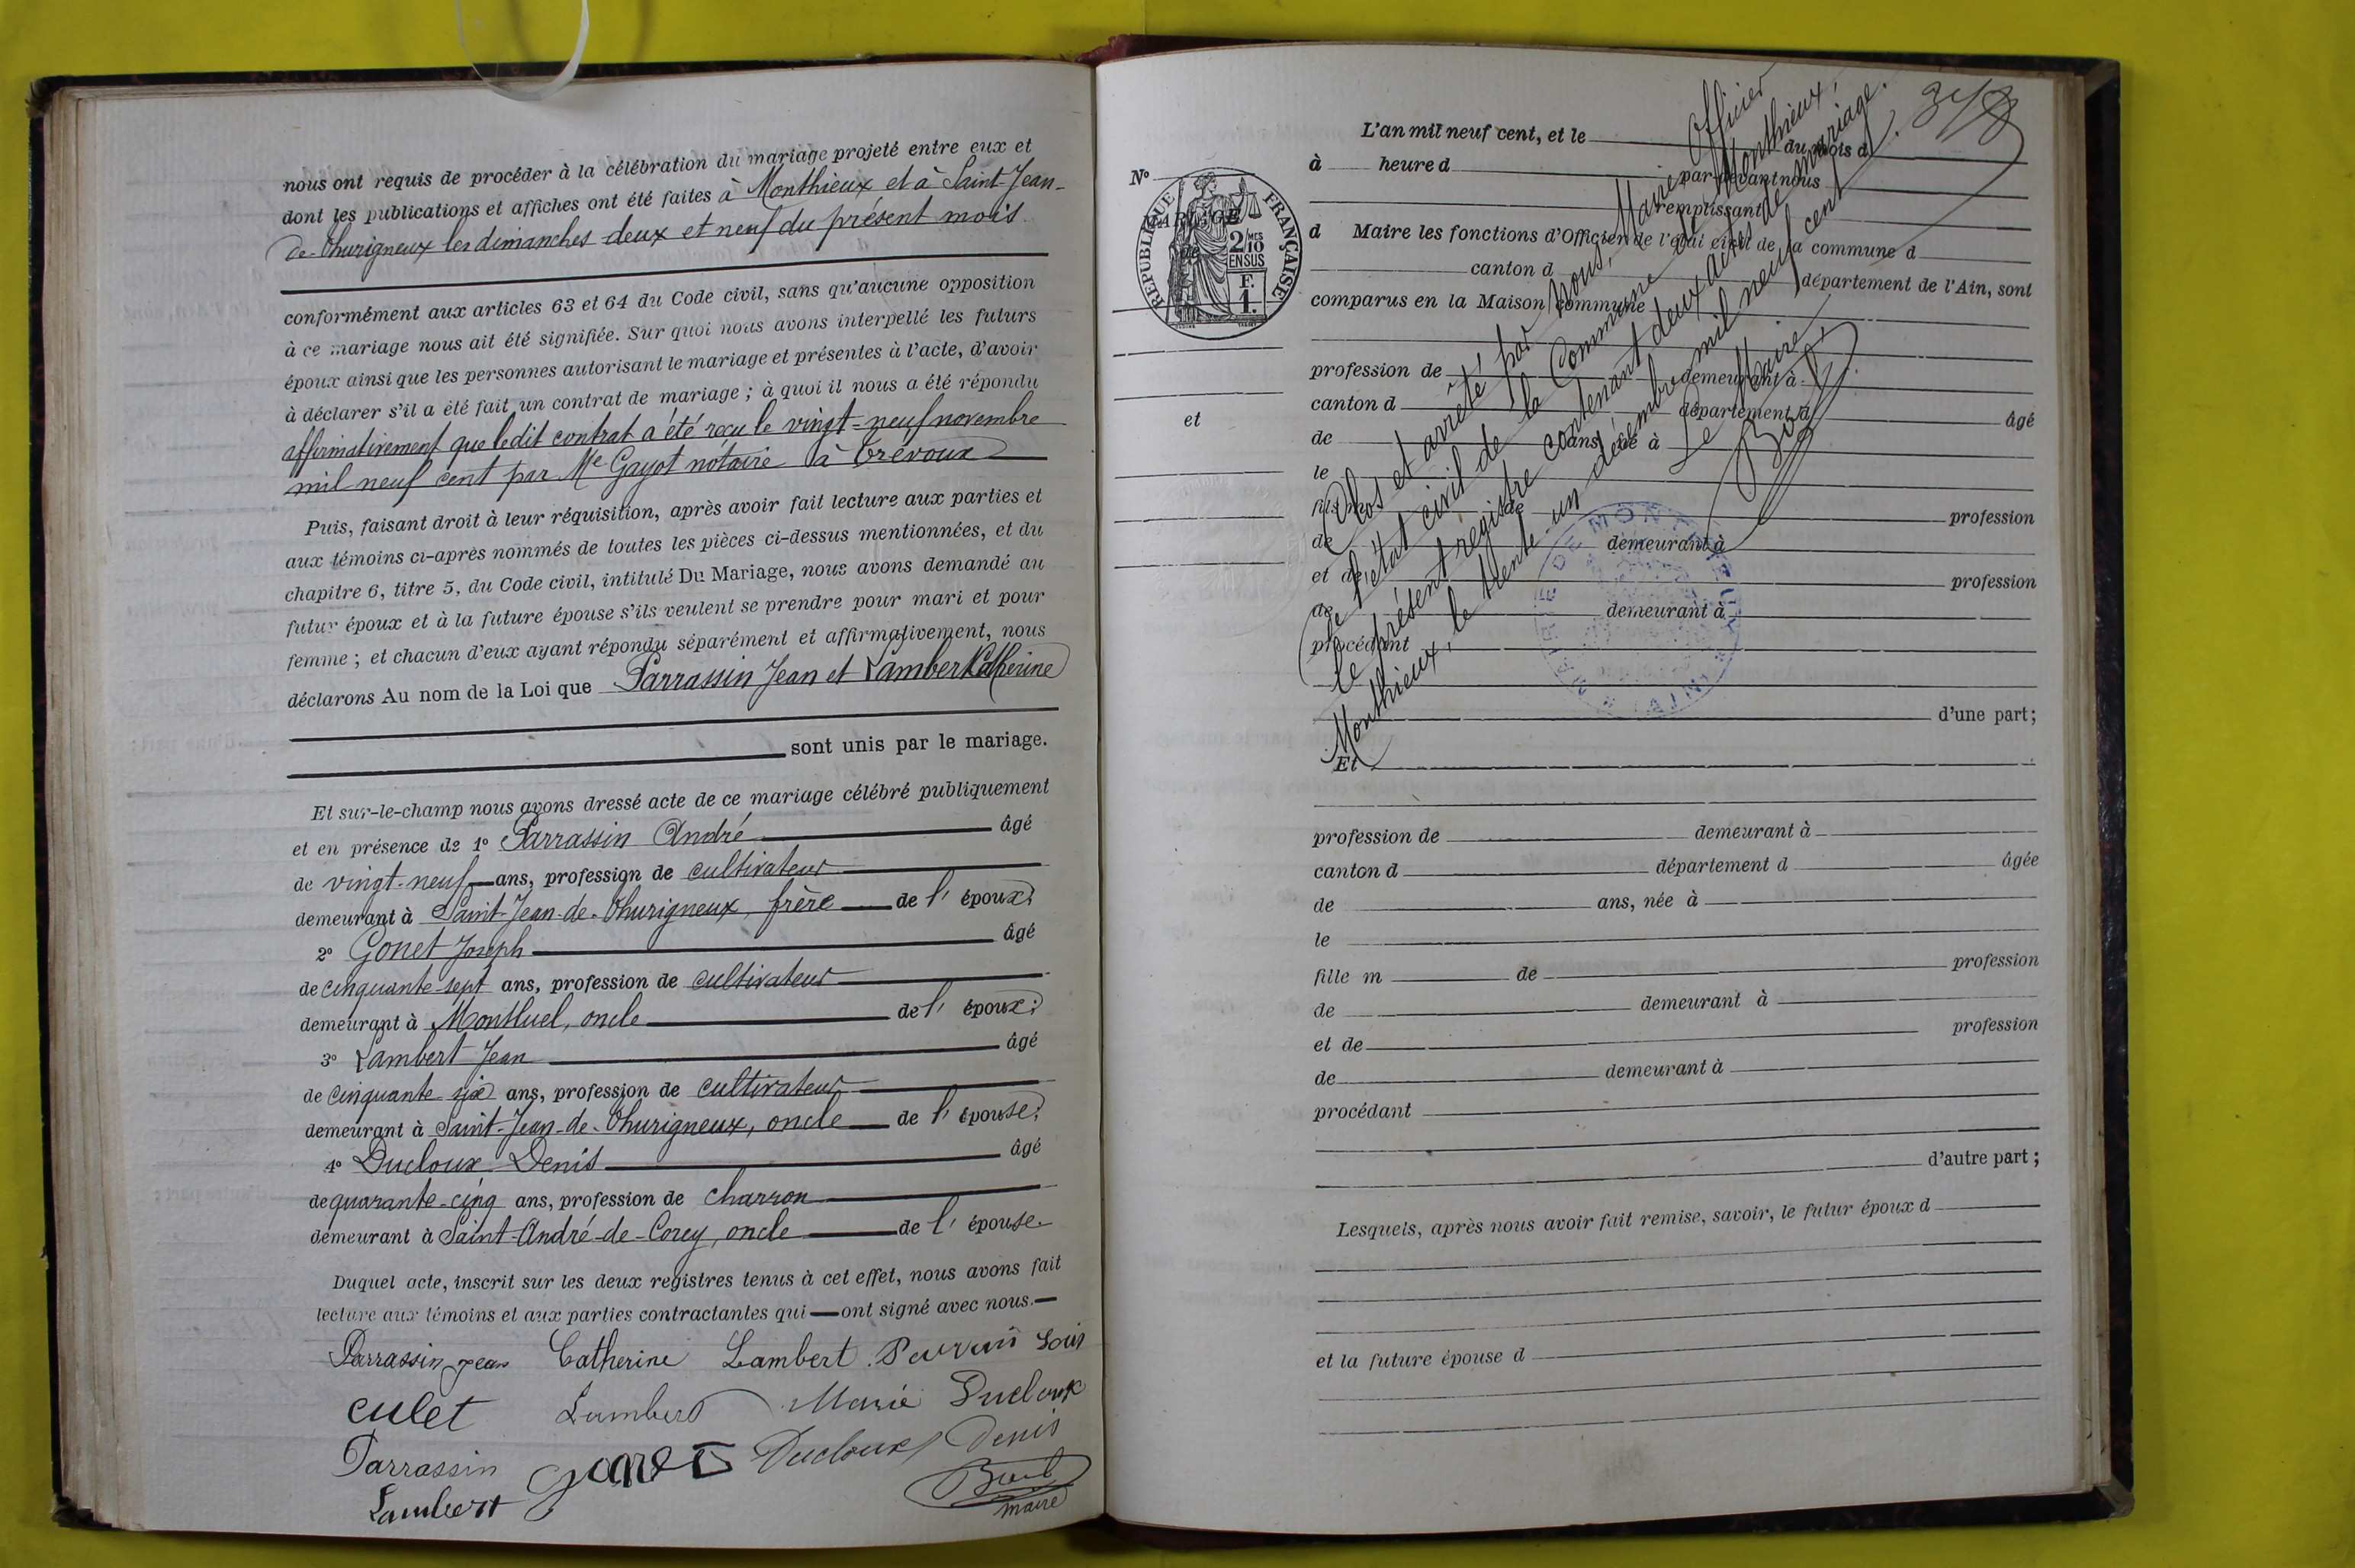 nous ont requis de procéder à la célébration du mariage projeté entre eux et
dont les publications et affiches ont été faites à Monthieux et à Saint-Jean-
de-Thurigneux les dimanches deux et neuf du présent mois
conformément aux articles 63 et 64 du Code civil, sans qu'aucune opposition
à ce mariage nous ait été signifiée. Sur quoi nous avons interpellé les futurs
époux ainsi que les personnes autorisant le mariage et présentes à l'acte, d'avoir
à déclarer s'il a été fait un contrat de mariage ; à quoi il nous a été répondu
affirmativement que ledit contrat a été reçu le vingt-neuf novembre
mil neuf cent par Me Gayot notaire à Trévoux
Puis, faisant droit à leur réquisition, après avoir fait lecture aux parties et
aux témoins ci-après nommés de toutes les pièces ci-dessus mentionnées, et du
chapitre 6, titre 5, du Code civil, intitulé Du Mariage, nous avons demandé au
futur époux et à la future épouse s'ils veulent se prendre pour mari et pour
femme ; et chacun d'eux ayant répondu séparément et affirmativement, nous
déclarons Au nom de la Loi que Parrassin Jean et Lambert Catherine
sont unis par le mariage.
Et sur-le-champ nous avons dressé acte de ce mariage célébré publiquement
et en présence de 1° Parrassin André âgé
de vingt-neuf ans, profession de cultivateur
demeurant à Saint-Jean-de-Thurigneux, frère de l' époux;
2° Gonet Joseph âgé
de cinquante-sept ans, profession de cultivateur
demeurant à Montluel, oncle de l' époux;
3° Lambert Jean âgé
de cinquante six ans, profession de cultivateur
demeurant à Saint-Jean-de-Thurigneux, oncle de l' épouse;
4° Ducloux Denis âgé
de quarante-cinq ans, profession de charron
demeurant à Saint-André-de-Corcy, oncle de l' épouse.
Duquel acte, inscrit sur les deux registres tenus à cet effet, nous avons fait
lecture aux témoins et aux parties contractantes qui ont signé avec nous.
Parrassin Jean Catherine Lambert
culet Lambert Marie Ducloux
Parrassin Gonet Ducloux Denis
Lambert
maire
L'an mil neuf cent, et le du mois d
à heure d par-devant nous
remplissant
d Maire les fonctions d'Officier de l'état civil de la commune d
canton d département de l'Ain, sont
comparus en la Maison commune
N°
MARIAGE
de
et
RÉPUBLIQUE FRANÇAISE
2/10 MES
EN SUS
F.
1.
profession de demeurant à
canton d département d âgé
de ans, né à
le
fils m de profession
de demeurant à
et de profession
de demeurant à
procédant
d'une part;
Et
profession de demeurant à
canton d département d âgée
de ans, née à
le
fille m de profession
de demeurant à
et de profession
de demeurant à
procédant
d'autre part ;
Lesquels, après nous avoir fait remise, savoir, le futur époux d
et la future épouse d
Clos et arrêté par Nous, Maire, Officier
de l'état civil de la Commune de Monthieux,
le présent registre contenant deux actes de mariage.
Monthieux, le trente-un décembre mil neuf cent.
Le Maire,